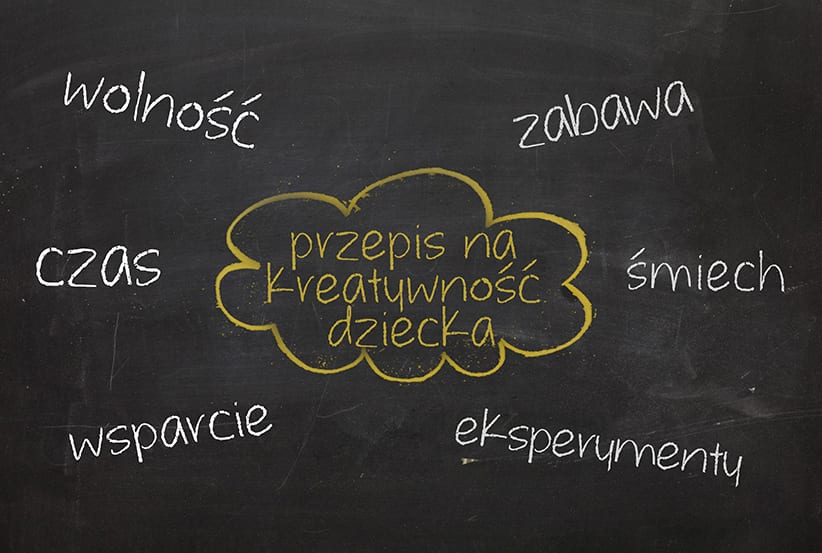 wolność
zabawa
przepis na
kreatywność
dziecka
czas
śmiech
wsparcie
eksperymenty